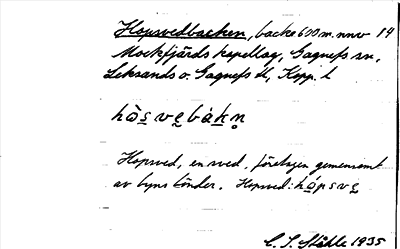 Hopsvedbacken, backe 600 m. nnv 14
Mockfjärds kapellag, Gagnefs sn,
Leksands o. Gagnefs tl, Kopp. l
hò̱s̱vḛbák̲n̥
Hopsved, en sved, företagen gemensamt
av byns bönder. Hopsved: hápsvḛ
C. I. Ståhle 1935